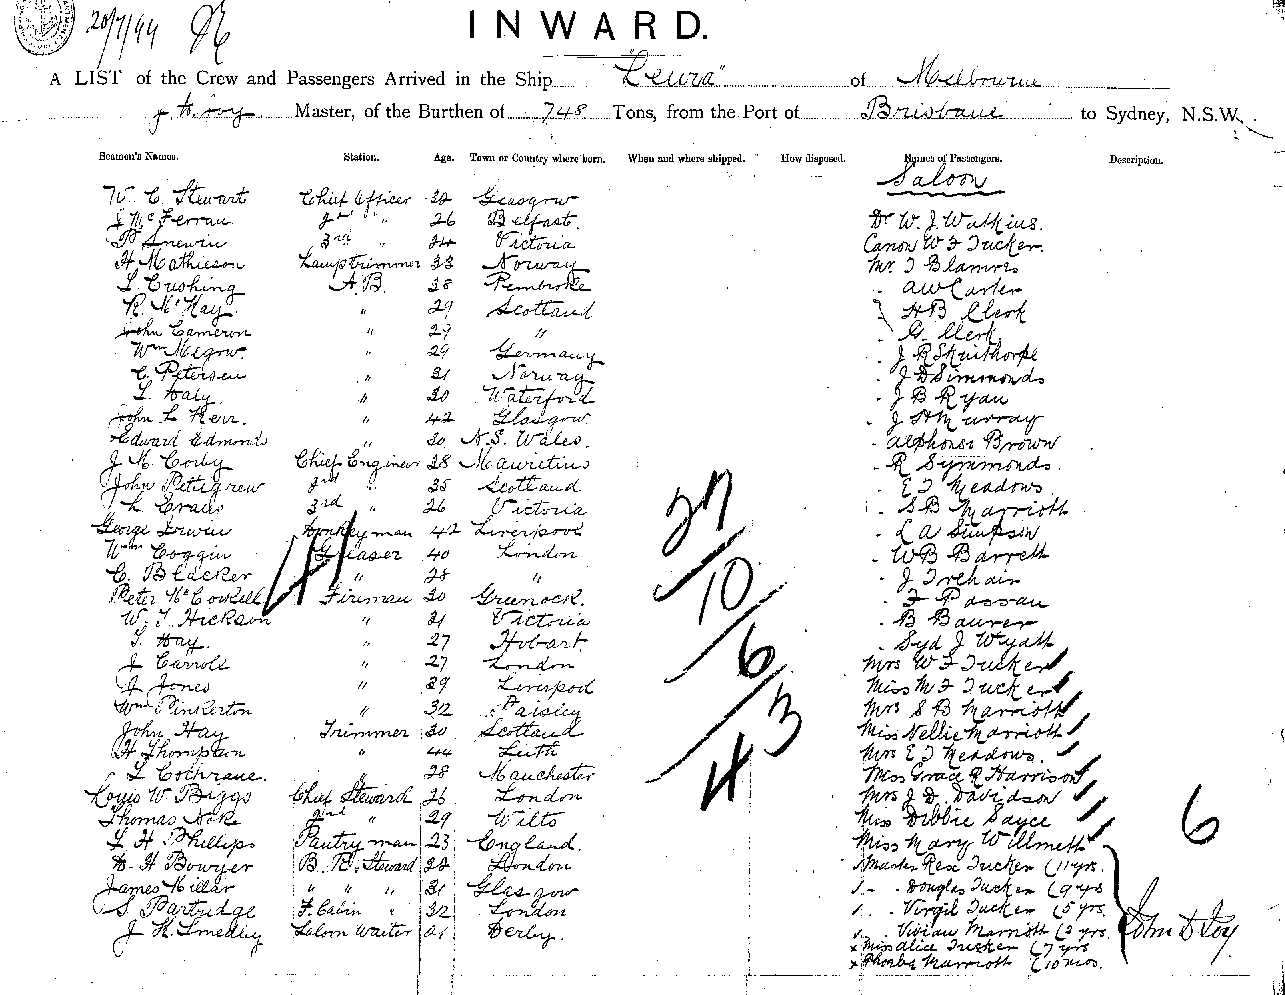 20/7/99
INWARD.
A LIST of the Crew and Passengers Arrived in the Ship "Leura" of Melbourne
Master, of the Burthen of 748 Tons, from the Port of Brisbane to Sydney, N.S.W.
Seamen's Names. Station. Age. Town or Country where born. When and where shipped. How disposed. Names of Passengers. Description.
Saloon
W. C. Stewart Chief Officer Glasgow
J McFerran 2nd " 26 Belfast. Dr W. J. Watkins.
3rd " Victoria Canon W F Tucker.
H. Mathieson Lamptrimmer 33 Norway Mr. T
L. Cushing A.B. 38 Pembroke . AW Carter
R. McKay " 29 Scotland HB Clerk
John Cameron " 29 " . G. Clerk
Wm " 29 Germany . J R
C. Petersen " 31 Norway . J D Simmonds
" 30 Waterford . J B Ryan
John L Kerr. " 42 Glasgow . J H Murray
Edward Edmonds " 30 N.S. Wales. . Alphonse Brown
J. M. Corby Chief Engineer 38 Mauretius . R Symmonds.
John Pettigrew 2nd " 35 Scotland . E J Meadows
3rd " 26 Victoria . S B Marriott
George Irwin Donkeyman 42 Liverpool . L A Simpson
Wm Coggin Greaser 40 London . WB Barrett
C. Blacker " 28 " . J Trehair
Peter Fireman 30 Greenock.
W. J. Hickson " 21 Victoria . B
T. Hay. " 27 Hobart. . Syd J Wyatt
J Carroll " 27 London Mrs W F Tucker
J. Jones " 29 Liverpool Miss M F Tucker
Wm Pinkerton " 32 Paisley Mrs S B Marriott
John Hay Trimmer 30 Scotland Miss Nellie Marriott
H Thompson " 44 Leith Mrs E J Meadows.
L Cochrane. " 28 Manchester Miss Grace R Harrison
Louis W. Biggs Chief Steward 26 London Mrs J. D. Davidson
Thomas 2nd " 29 Wilts Miss Debbie Sayce
L H Phillips Pantryman 23 England. Miss Mary Willmett
H Bowyer B. R. Steward London Master Rex Tucker (11 yrs.
James Millar " " " 31 Glasgow . Douglas Tucker (9 yrs
S. Partridge F. Cabin " 32 London . Virgil Tucker (5 yrs.
J H. Smedley Saloon Waiter 21 Derby. . Vivian Marriott (2 yrs.
x Miss Alice Tucker (7 yrs
x Phoebe Marriott (10 mos.
41
27
10
6
43
6